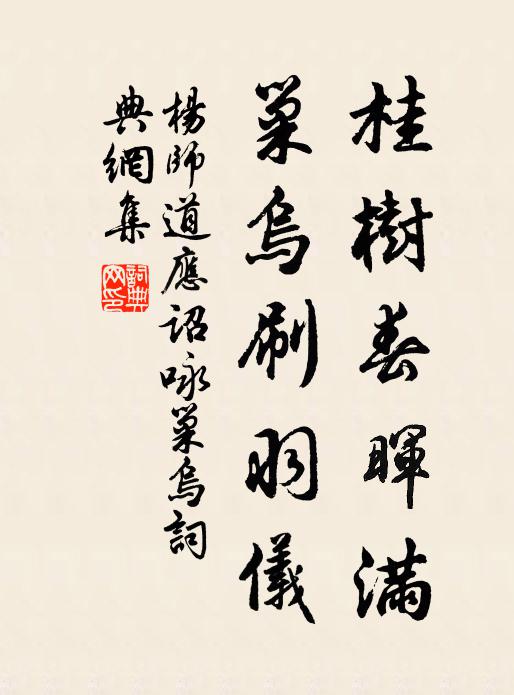 桂樹春暉滿
巢烏刷羽儀
楊師道應詔咏巢烏詞
典網集
詞典網印